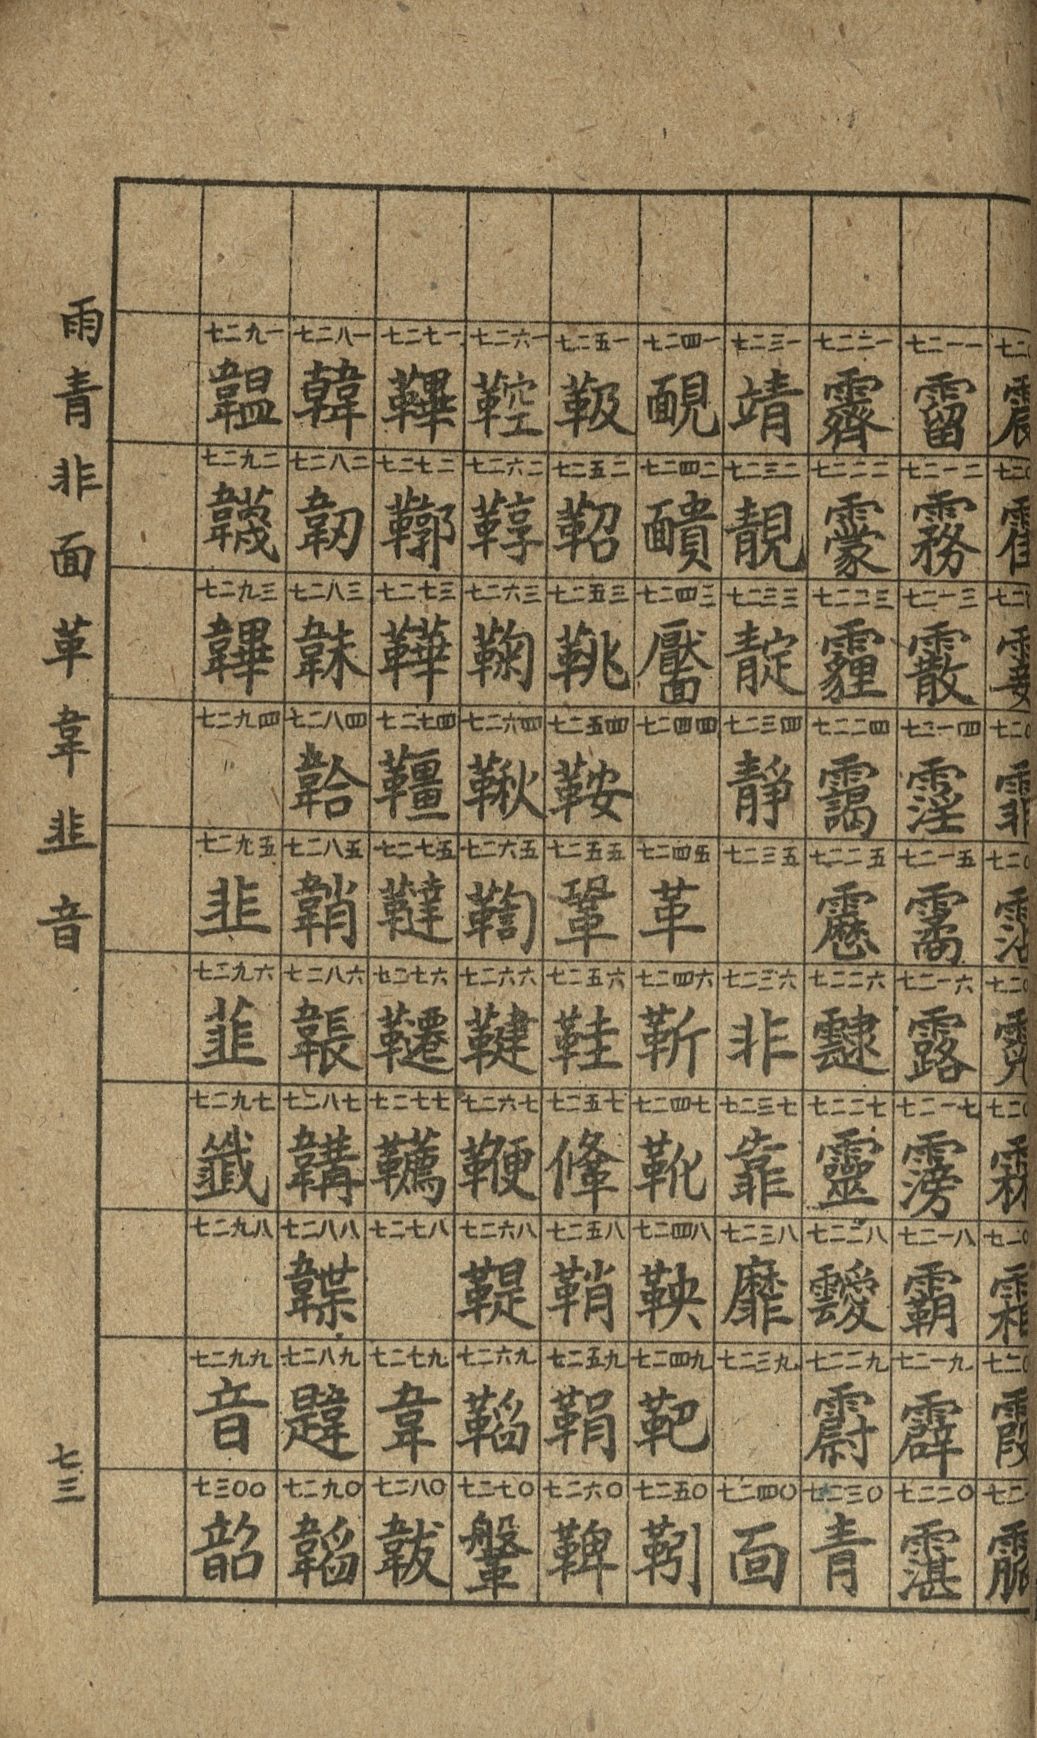 七二一一 霤
七二一二 霧
七二一三 霰
七二一四 霪
七二一五 霱
七二一六 露
七二一七 霶
七二一八 霸
七二一九 霹
七二二〇 霮
七二二一 霽
七二二二 靀
七二二三 霾
七二二四 靄
七二二五 靂
七二二六 靆
七二二七 靈
七二二八 靉
七二二九 霨
七二三〇 青
七二三一 靖
七二三二 靚
七二三三 靛
七二三四 靜
七二三五
七二三六 非
七二三七 靠
七二三八 靡
七二三九
七二四〇 面
七二四一 靦
七二四二 靧
七二四三 靨
七二四四
七二四五 革
七二四六 靳
七二四七 靴
七二四八 鞅
七二四九 靶
七二五〇 靷
七二五一 靸
七二五二 鞀
七二五三 鞉
七二五四 鞍
七二五五 鞏
七二五六 鞋
七二五七 鞗
七二五八 鞘
七二五九 鞙
七二六〇 鞞
七二六一 鞚
七二六二 鞟
七二六三 鞠
七二六四 鞦
七二六五 鞫
七二六六 鞬
七二六七 鞭
七二六八 鞮
七二六九 鞱
七二七〇 鞶
七二七一 鞸
七二七二 鞹
七二七三 鞾
七二七四 韁
七二七五 韃
七二七六 韆
七二七七 韉
七二七八
七二七九 韋
七二八〇 韍
七二八一 韓
七二八二 韌
七二八三 韎
七二八四 韐
七二八五 韒
七二八六 韔
七二八七 韝
七二八八 韘
七二八九 韙
七二九〇 韜
七二九一 韞
七二九二 韤
七二九三 韠
七二九四
七二九五 韭
七二九六 韮
七二九七 韱
七二九八
七二九九 音
七三〇〇 韶
雨青非面革韋韭音
七三